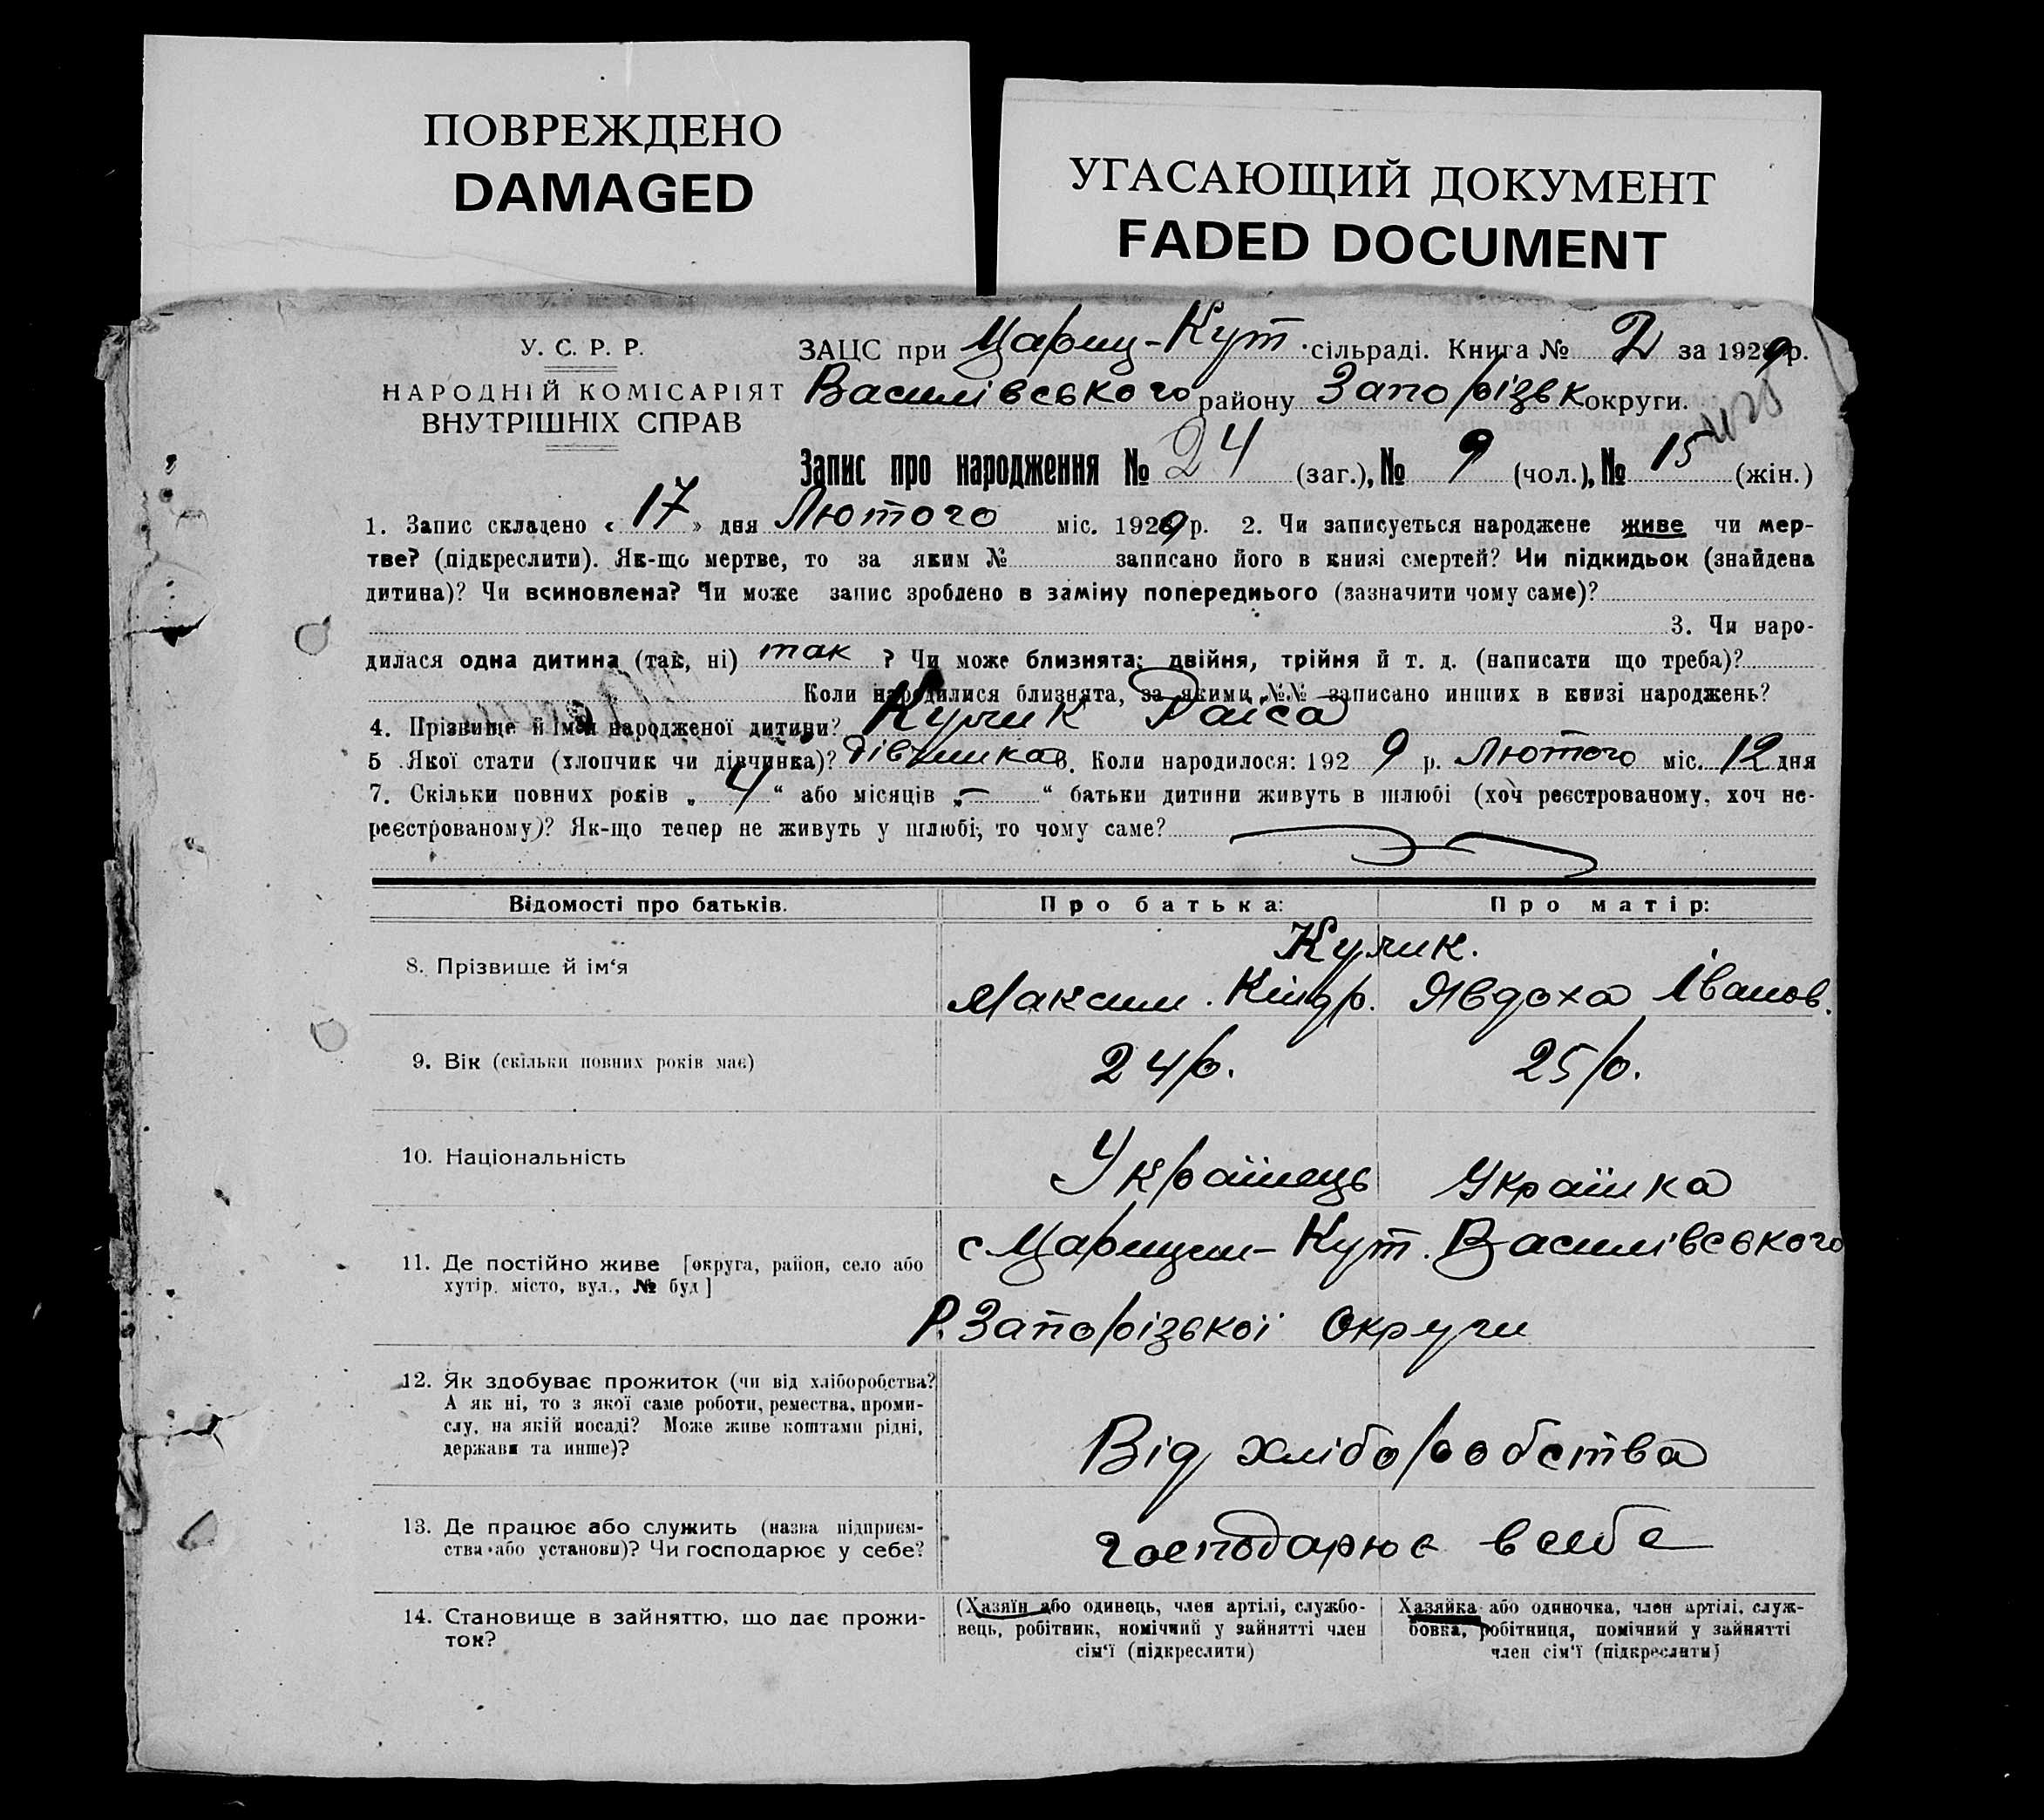 ПОВРЕЖДЕНО
DAMAGED
УГАСАЮЩИЙ ДОКУМЕНТ
FADED DOCUMENT
У. С. Р. Р.
НАРОДНІЙ КОМІСАРІЯТ
ВНУТРІШНІХ СПРАВ
ЗАЦС при Цариц-Кут сільраді. Книга № 2 за 1929 р.
Василівського району Запорізьк округи.
Запис про народження № 24 (заг.), № 9 (чол.), № 15 (жін.)
1. Запис складено « 17 » дня Лютого міс. 1929 р. 2. Чи записується народжене живе чи мер-
тве? (підкреслити). Як-що мертве, то за яким № записано його в книзі смертей? Чи підкидьок (знайдена
дитина)? Чи всиновлена? Чи може запис зроблено в заміну попереднього (зазначити чому саме)?
3. Чи наро-
дилася одна дитина (так, ні) так ? Чи може близнята: двійня, трійня й т. д. (написати що треба)?
Коли народилися близнята, за якими №№ записано инших в книзі народжень?
4. Прізвище й імя народженої дитини? Кулик Раїса
5 Якої стати (хлопчик чи дівчинка)? Дівчинка 6. Коли народилося: 192 9 р. Лютого міс. 12 дня
7. Скільки повних років „ 4 “ або місяців „ — “ батьки дитини живуть в шлюбі (хоч реєстрованому, хоч не-
реєстрованому)? Як-що тепер не живуть у шлюбі, то чому саме?
Відомості про батьків. Про батька: Про матір:
Кулик.
8. Прізвище й ім‘я Максим. Кіндр. Явдоха Іванов.
9. Вік (скільки повних років має) 24 р. 25 р.
10. Національність Українець Українка
11. Де постійно живе [округа, район, село або
хутір, місто, вул., № буд]
с Царицин-Кут. Василівського
Р. Запорізької Округи
12. Як здобуває прожиток (чи від хліборобства?
А як ні, то з якої саме роботи, ремества, проми-
слу, на якій посаді? Може живе коштами рідні,
держави та инше)?
Від хліборобства
13. Де працює або служить (назва підприєм-
ства або установи)? Чи господарює у себе?
господарює в себе
14. Становище в зайняттю, що дає прожи-
ток?
(Хазяїн або одинець, член артілі, службо-
вець, робітник, помічний у зайнятті член
сім‘ї (підкреслити)
Хазяйка або одиночка, член артілі, служ-
бовка, робітниця, помічний у зайнятті
член сім‘ї (підкреслити)